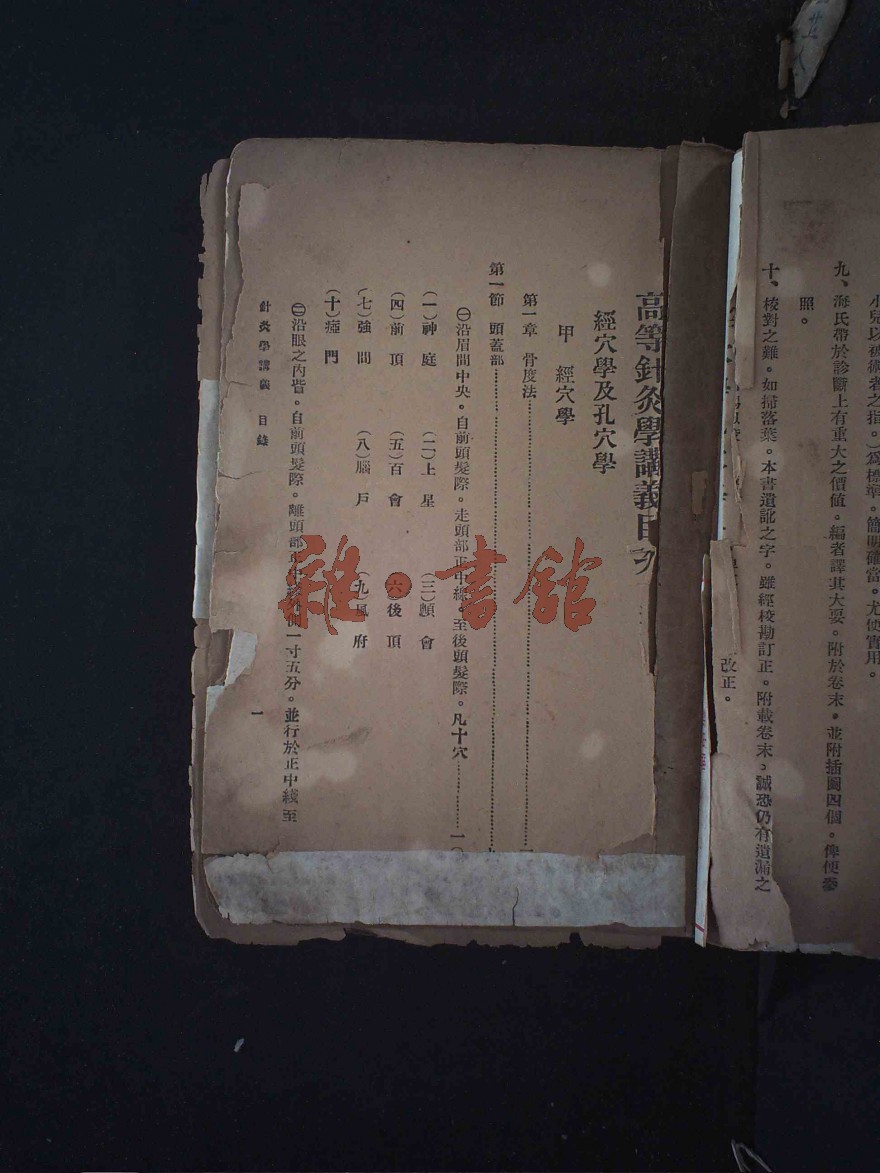 小兒以被術者之指。)爲標準。簡明確當。尤便實用。
九、海氏帶於診斷上有重大之價値。編者譯其大要。附於卷末。並附插圖四個。俾便參
照。
十、校對之難。如掃落葉。本書遺訛之字。雖經校勘訂正。附載卷末。誠恐仍有遺漏之
改正。
高等針灸學講義目
經穴學及孔穴學
甲 經穴學
第一章 骨度法…………一
第一節 頭蓋部…………九
㊀沿眉間中央。自前頭髮際。走頭部正中線。至後頭髮際。凡十穴…………一〇
(一)神庭 (二)上星 (三)顖會
(四)前頂 (五)百會 (六)後頂
(七)強間 (八)腦戶 (九)風府
(十)瘂門
㊁沿眼之內眥。自前頭髮際。離頭部正中線外側一寸五分。並行於正中綫至
針灸學講義 目錄 一
雜·書館